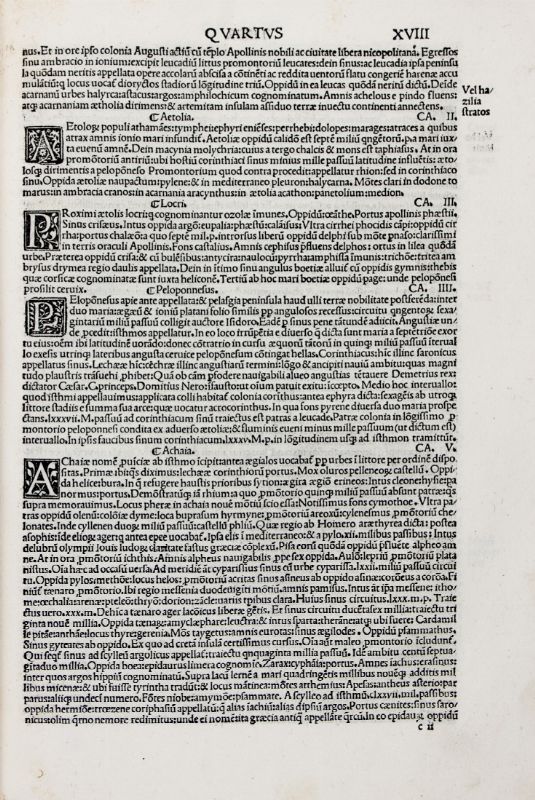 QVARTVS XVIII
nus. Et in ore ipso colonia Augusti actiũ cũ tẽplo Apollinis nobili ac ciuitate libera nicopolitana. Egressos
sinu ambracio in ionium: excipit leucadiũ littus promontoriũ leucates: dein sinus: ac leucadia ipsa peninsu
la quõdam neritis appellata opere accolarũ abscisa a cõtinẽti ac reddita uentorũ flatu congeriẽ harenæ accu
mulatiũ: q locus uocaf dioryctos stadiorũ lõgitudine triũ. Oppidũ in ea leucas quõdã neritũ dictũ. Deide
acarnanũ urbes halyrca: astacus: argos: amphilochicum cognominatum. Amnis achelous e pindo fluens:
atq acarnaniam ætholia dirimens: & artemitam insulam assiduo terræ inuectu continenti annectens.
Vel ha
zilia
stratos
Aetolia. CA. II.
AEtolog populi athamães: tympheie: phyri eniẽses: perrhebi: dolopes: marages: atraces a quibus
atrax amnis ionio mari insundif. Aetoliæ oppidũ calidõ est septẽ miliũ qngẽtorũ. p. a mari iux
ta euenũ amnẽ. Dein macynia molychria: cuius a tergo chalcis & mons est taphiasus. At in ora
promõtoriũ antiriũ: ubi hostiũ corinthiaci sinus minus mille passuũ latitudine influẽtis: æto
losq dirimentis a peloponẽso Promontorium quod contra procedit: appellatur rhion: sed in corinthiaco
sinu. Oppida ætoliæ naupactum: pylene: & in mediterraneo pleuron: halycarna. Mõtes clari in dodone to
marus: in ambracia cranos: in acarnania aracynthus: in ætolia acathon: panetolium: medion.
Locri. CA. III.
PRoximi ætolis locri: q cognominantur ozolæ imunes. Oppidũ: œãthe. Portus apollinis phæstii.
Sinus crisæus. Intus oppida argõ: eupalia: phæstũ: calãisus: Vltra cirrhei phocidis cãpi: oppidũ cir
rha: portus chalæõ: a quo septẽ mil. p. introrsus liberũ oppidũ delphi sub mõte pnaso: clarissimi
in terris oraculi Apollinis. Fons castalius. Amnis cephisus pfluens delphos: ortus in lilea quõdã
urbe. Præterea oppidũ crisa: & cũ bulẽsibus: antycira: naulocũ: pyrrha: amphissa imunis: trichõe: tritea am
brysus drymea regio daulis appellata. Dein in itimo sinu angulus boetiæ alluif cũ oppidis gymnis: thebis
quæ corsicæ cognominatæ sunt iuxta heliconẽ. Tertiũ ab hoc mari boetiæ oppidũ page: unde peloponesi
prosilit ceruix. Peloponesus. CA. IIII.
PEloponẽsus apie ante appellata: & pelasgia peninsula haud ulli terræ nobilitate postferẽda: inter
duo maria: ægæũ & ioniũ platani folio similis pp angulosos recessus: circuitu qngentog sexa
gintariũ miliũ passuũ colligit auctore Isidoro. Eadẽ p sinus pene tãtundẽ adiicit. Angustiæ un
de pcedit: isthmos appellatur. In eo loco irrũpẽtia e diuerso q dicta sunt maria a septẽtriõe exor
tu eius oẽm ibi latitudinẽ uorãdo: donec cõtratrio in cursu æquorũ tãtorũ in quinq miliũ passuũ interual
lo exesis utrinq lateribus angusta ceruice pelopõnesum cõtingat hellas. Corinthiacus: hic illinc saronicus
appellatus sinus. Lecheæ hic: cẽchræ illinc angustiarũ termini: lõgo & ancipiti nauiũ ambitu: quas magni
tudo plaustris trãsuehi phibet: Quã ob cãm pfodere nauigabili alueo angustias tẽtauere Demetrius rex:
dictator Cæsar. C. princeps. Domitius Nero: ifausto: ut oium patuit exitu: icœpto. Medio hoc interuallo:
quod isthmi appellauimus: applicata colli habitaf colonia corithus: antea ephyra dicta: sexagẽis ab utroq
littore stadiis e summa sua arce: quæ uocatur acrocorinthus: in qua fons pyrene diuersa duo maria prospe
ctans. lxxxvii. M. passuũ ad corinthiacum sinũ traiectus est patras a leucade. Patræ colonia in lõgissimo p
montorio peloponesi condita ex aduerso ætoliæ: & fluminis eueni minus mille passuum (ut dictum est)
interuallo. In ipsis faucibus sinum corinthiacum. lxxxv. M. p. in lõgitudinem usq ad isthmon tramittit.
Achaia. CA. V.
AChaiæ nomẽ puiciæ ab isthmo icipit: antea ægialos uocabaf pp urbes i littore per ordinẽ dispo
sitas. Primæ ibi: qs diximus: lecheæ corinthiorũ portus. Mox oluros pelleneog castellũ. Oppi
da helice: bura. In q refugere haustis prioribus sytion: ægira ægiõ erineos: Intus cleone: hysiæ: pa
normus: portus. Demõstratũq iã rhium: a quo pmõtorio quinq miliũ passuũ absunt patræ: qs
supra memorauimus. Locus pheræ in achaia nouẽ mõtiũ scio essa: Notissimus fons cymothoe. Vltra pa
tras oppidũ olenũ: colõia: dyme: loca buprasum hyrmyne: pmõtoriũ araxũ: cylenẽsnus: pmõtoriũ che
lonates. Inde cyllenen duog miliũ passuũ: castellũ phliũ. Quæ regio ab Homero aræthyrea dicta: postea
asophis: ide eliog: ageriq antea epeæ uocabaf. Ipsa elis i mediterraneo: & a pylo. xii. milibus passibus: Intus
delubrũ olympii Iouis ludog claritate fastus græciæ cõplexũ. Pisæ corã quõdã oppidũ pfluẽte alpheo am
ne. At in ora pmõtoriũ ichthis. Amnis alpheus nauigabilis p pe sex oppida. Aulõ: lepriũ pmõtoriũ plata
nistus. Oia hæc ad occasũ uersa. Ad meridiẽ aut cyparissus sinus cũ urbe cyparissa. lxxii. miliũ passuũ circui
tu. Oppida pylos: methõe: locus helos: pmõtoriũ acritas sinus asineus ab oppido asinæ: corõneus a corõa. Fi
niũf tænaro pmõtorio. Ibi regio messenia duodeuigiti mõtiũ. amnis pamisus. Intus aũt ipa messene: itho
me: œchalia: arene: pteleõ: thryõ: dorion: zãcle: uariis tpibus clara. Huius sinus circuitus. lxxx. m. p. Traie
ctus uero. xxx. m. Dehicã tænaro ager lacõicus liberæ gẽtis. Et sinus circuitu ducẽta sex milliũ: traiectu tri
ginta nouẽ milliũ. Oppida tænaræ: amyclæ: pharæ: leuctra: & intus sparta: therãne: atq ubi fuere: Cardamil
le pitãe: anthãe: locus thyre: gerenia. Mõs taygetus: amnis eurotas: sinus ægilodes. Oppida psammathus.
Sinus gytreates ab oppido. Ex quo ad cretã insulã certissimus cursus. Oia aũt maleo pmontorio icludunf.
Qui seqf sinus ad scylleũ argolicus appellaf: traiectu qnquaginta millia passuũ. Idẽ ambitu centũ septua
gitaduo millia. Oppida boea: epidaurus limera cognoiẽ. Zarax: cyphãta: portus. Amnes iachus: erasinus:
inter quos argos hippiũ cognominatũ. Supra locũ lernẽ a mari quadringẽtis millibus nouẽq additis mil
libus micenæ: & ubi fuisse tyrintha tradũt: & locus mãtinea: mõtes artemius: Apesas: antheus asterio: par
parus: aliiq undeci numero. Fõtes niobe: amymõe: psammate. A scylleo ad isthmũ. lxxvii. mil. passibus:
oppida hermiõe: trœzene coriphasiũ appellatũ: q alias iachiũ: alias dipsiũ argos. Portus cœnites: sinus saro
nicus: olim qrno nemore redimitus: unde ei nomẽ: ita græcia antiq appellate qrcũ. In eo epidaug oppidũ
c ii